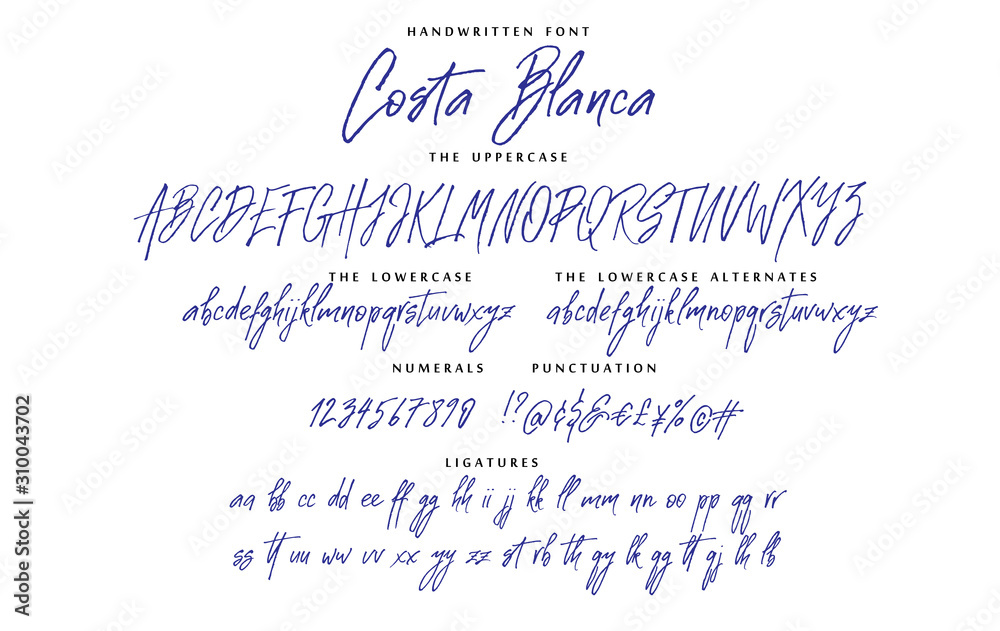 HANDWRITTEN FONT
Costa Blanca
THE UPPERCASE
ABCDEFGHIJKLMNOPQRSTUVWXYZ
THE LOWERCASE
abcdefghijklmnopqrstuvwxyz
THE LOWERCASE ALTERNATES
abcdefghijklmnopqrstuvwxyz
NUMERALS
1234567890
PUNCTUATION
!?@¢$&€£¥%©#
LIGATURES
aa bb cc dd ee ff gg hh ii jj kk ll mm nn oo pp qq rr
ss tt uu ww vv xx yy zz st rb th gy lk gg lt gj lh lb
Adobe Stock | #310043702